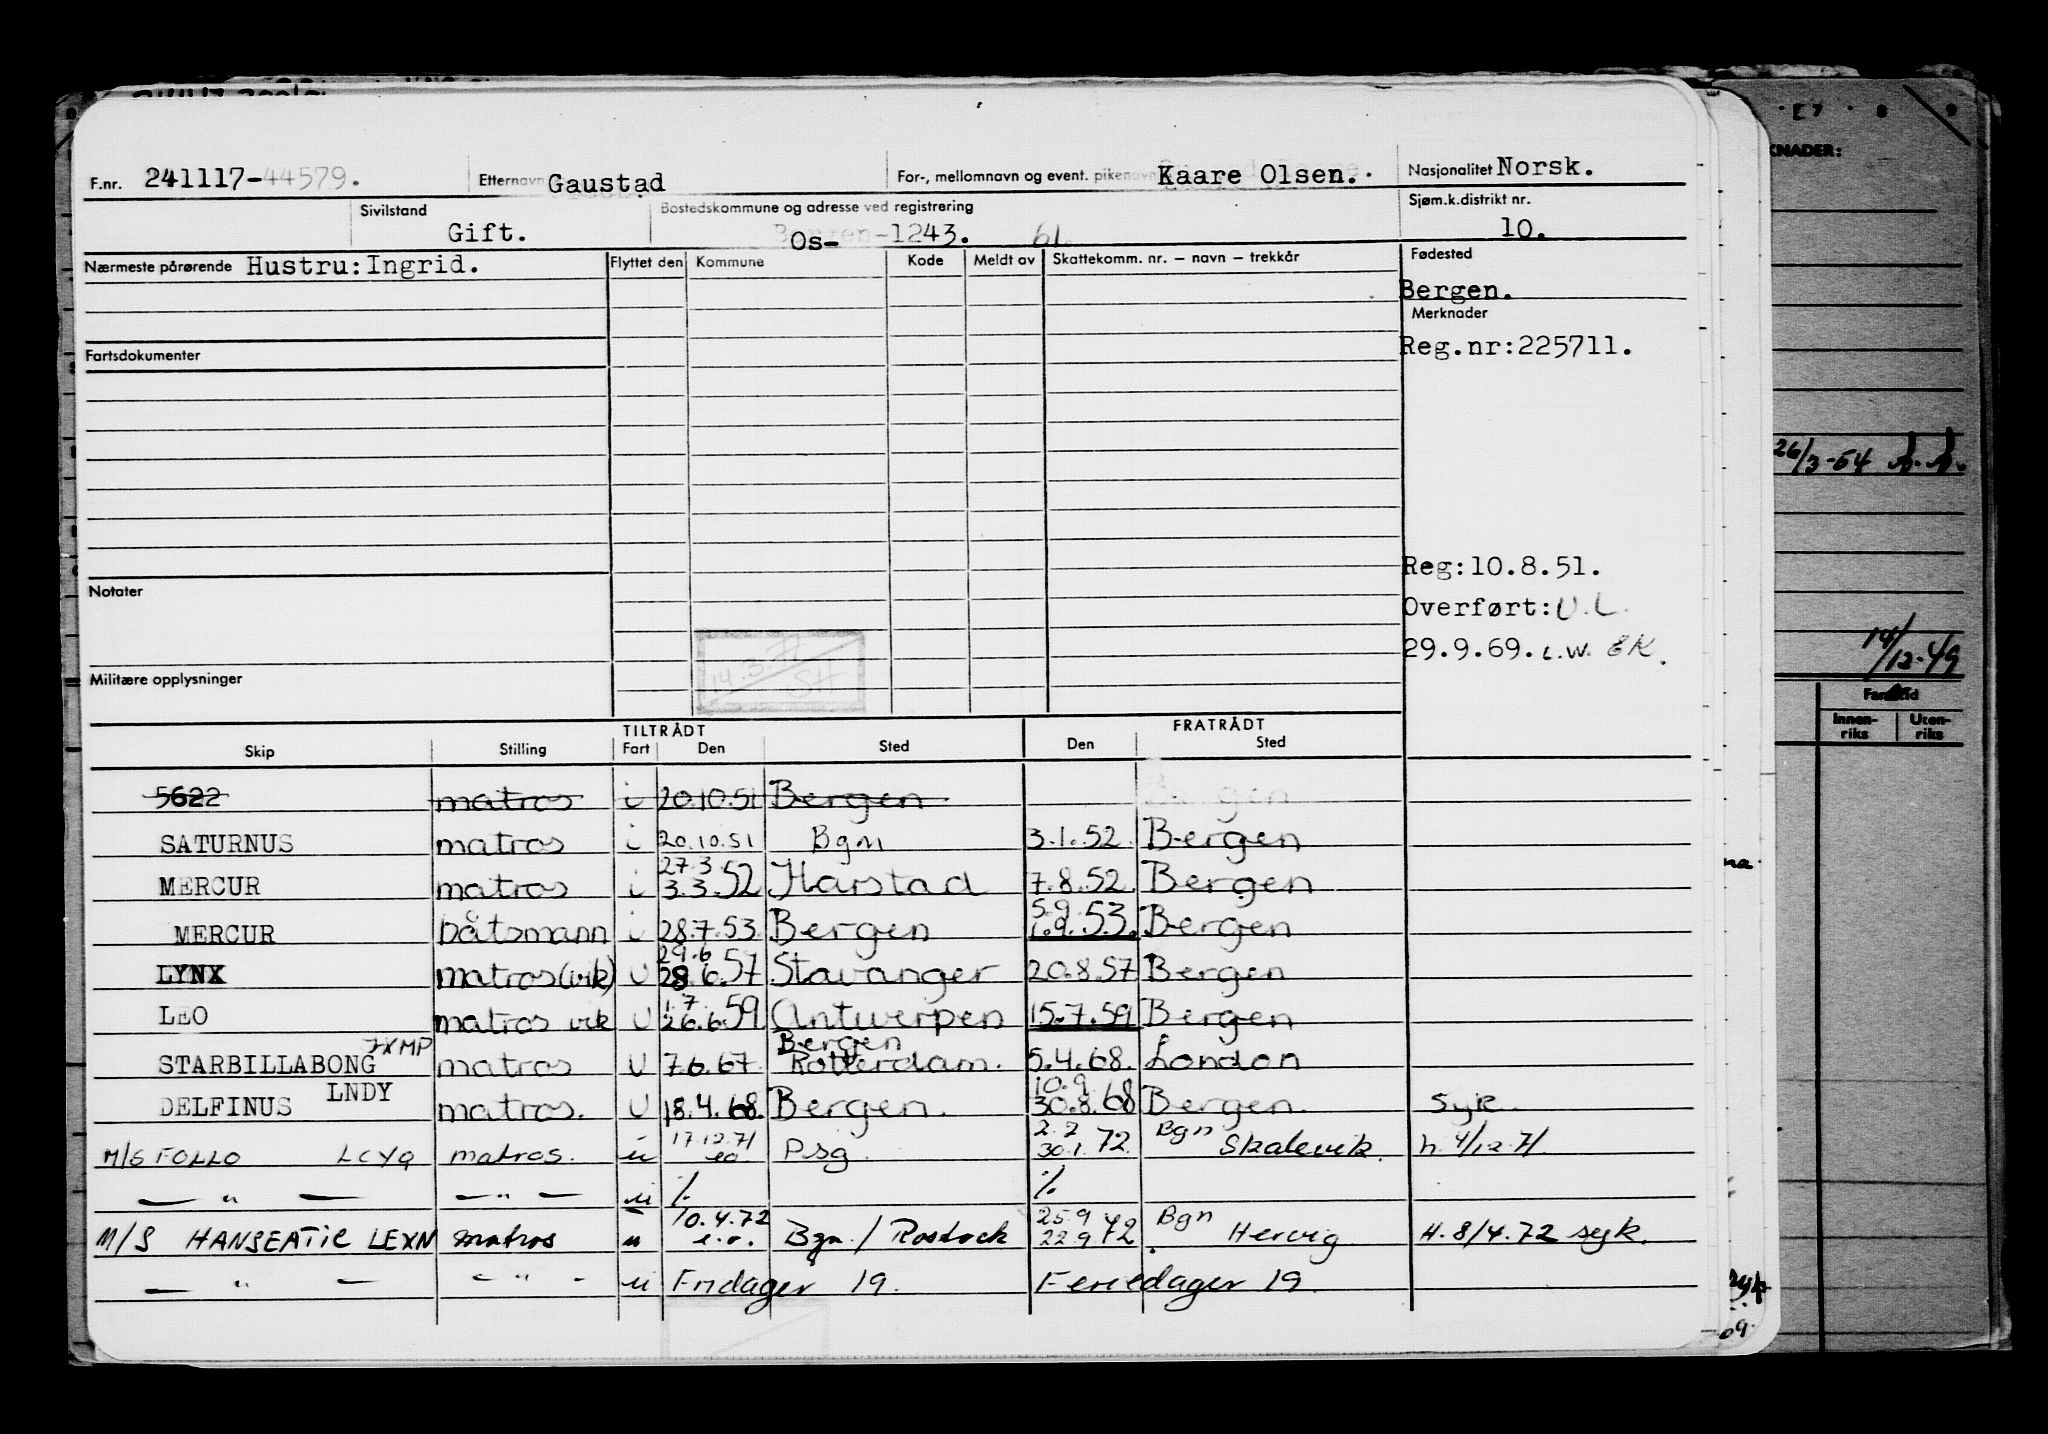 F.nr. 241117-44579. Etternavn Gaustad For-, mellomnavn og event. pikenavn Kaare Olsen. Nasjonalitet Norsk.
Sivilstand Gift. Bostedskommune og adresse ved registrering Os-1243. 61. Sjøm.k.distrikt nr. 10.
Nærmeste pårørende Hustru:Ingrid. Flyttet den Kommune Kode Meldt av Skattekomm. nr. – navn – trekkår Fødested
Bergen.
Merknader
Fartsdokumenter Reg.nr:225711.
Reg:10.8.51.
Notater Overført: U.L.
29.9.69. L.W. EK.
14.3.77 SH
Militære opplysninger
TILTRÅDT FRATRÅDT
Skip Stilling Fart Den Sted Den Sted
5622 matros i 20.10.51 Bergen
SATURNUS matros i 20.10.51 Bgn 3.1.52. Bergen
MERCUR matros i 27.3. 3.3.52 Harstad 7.8.52. Bergen
MERCUR båtsmann i 28.7.53. Bergen 5.9. 1.9.53. Bergen
LYNX matros(vik) U 29.6 28.6.57 Stavanger 20.8.57 Bergen
LEO matros vik U 1.7. 26.6.59 Antwerpen 15.7.59 Bergen
STARBILLABONG matros U 7.6.67. Bergen Rotterdam. 5.4.68. London
DELFINUS LNDY matros. U 18.4.68. Bergen. 10.9. 30.8.68 Bergen. Syk.
M/S FOLLO LCYQ matros. u 17.12.71 eo Psg 2.2 30.1.72. Bgn Skalevik. h. 4/12.71
— " — — " — u %. %.
M/S HANSEATIC LEXN matros u 10.4.72 e.o. Bgn / Rostock 25.9 22.9 72 Bgn Hervig H. 8/4.72 syk.
— " — - " - u Fridager 19. Feriedager 19.
KNADER:
26/3-54
14/12-49
Fartstid
Innen-riks Uten-riks